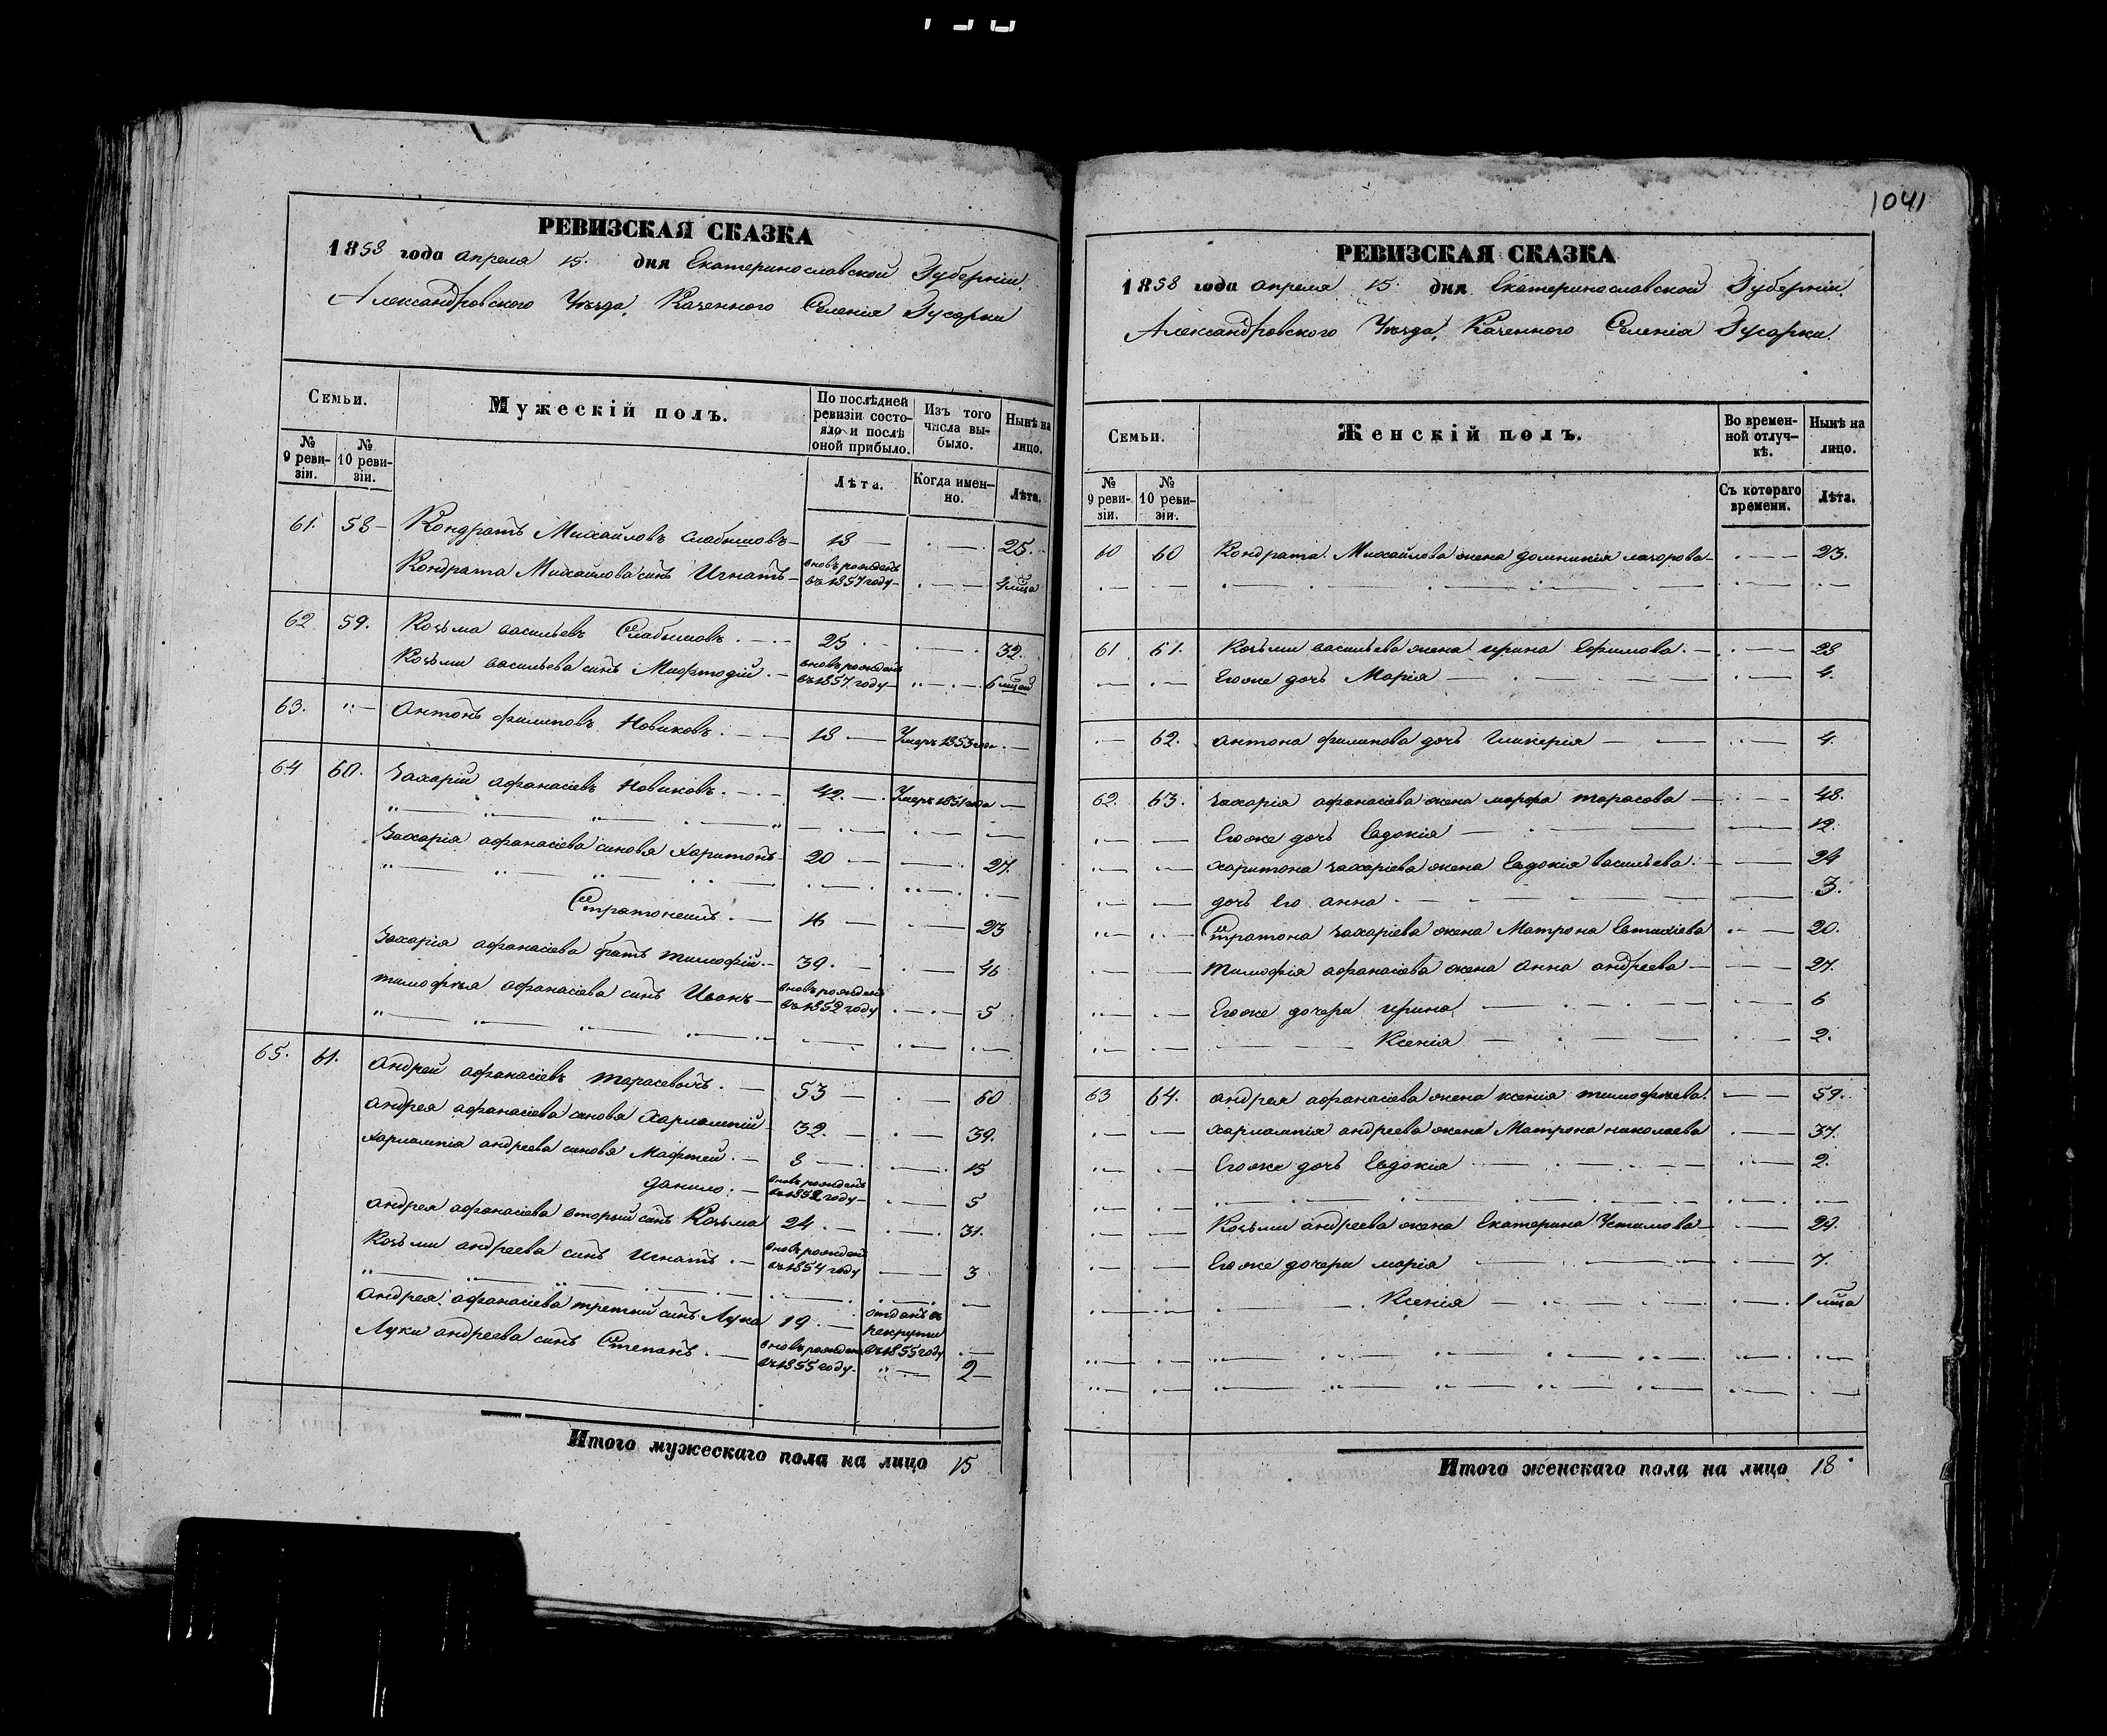 1041
РЕВИЗСКАЯ СКАЗКА
1858 года апреля 15 дня Екатеринославской Губерніи,
Александровского Уѣзда, Казенного Селенія Гусарки
Семьи.
Мужескій полъ.
По послѣдней ревизіи состояло и послѣ оной прибыло.
Изъ того числа выбыло.
Нынѣ на лицо.
№ 9 ревизіи.
№ 10 ревизіи.
Лѣта.
Когда именно.
Лѣта.
61. 58 Кондратъ Михайловъ 18 25.
Кондрата Михайлова сынъ Игнатъ вновь рожденъ въ 1857 году
62 59. Козьма васильевъ 25 32.
Козьми васильева синъ Мифтодій вновь рожденъ въ 1857 году 6
63. антонъ филиповъ Новиковъ. 18 Умеръ 1853 года
64 60. Захарій афанасіевъ Новиковъ. 42. Умеръ 1851 года
Захарія афанасіева синовя Харитонъ 20 27.
16 23
Захарія афанасіева братъ тимофій. 39. 46
тимофѣя афанасіева синъ Иванъ вновь рожденъ въ 1852 году 5
65. 61. андрей афанасіевъ 53 60
андрея афанасіева синовя Харлампій 32. 39.
Харлампія андреева синовя Мафтей. 8 15
данило. вновь рожденъ въ 1852 году 5
андрея афанасіева вторый синъ Козьма 24 31.
Козьми андреева синъ Игнатъ. вновь рожденъ въ 1854 году 3
андрея афанасіева третий синъ Лука 19. отданъ в рекрути въ 1855 году
Луки андреева синъ Степанъ. вновь рожденъ въ 1855 году. 2
Итого мужескаго пола на лицо 15
РЕВИЗСКАЯ СКАЗКА
1858 года апреля 15 дня Екатеринославской Губерніи,
Александровского Уѣзда, Казенного Селенія Гусарки.
Семьи.
Женскій полъ.
Во временной отлучкѣ.
Нынѣ на лицо.
№ 9 ревизіи.
№ 10 ревизіи.
Съ котораго времени.
Лѣта.
60 60 Кондрата Михайлова жена домникія 23.
61 61. Козьми васильева жена ирина Ефимова. 28
Егоже дочь Марія 4.
62. антона филипова дочь Гликерія 4.
62. 63. захарія афанасіева жена марфа тарасова 48.
Егоже дочь Евдокія 12.
харитона захаріева жена Евдокія васильева. 24
дочь его анна 3.
Стратона захаріева жена Матрона Евтихіева 20.
тимофія афанасіева жена анна андреева 27.
Егоже дочери ирина 6
Ксенія 2.
63 64. андрея афанасіева жена ксенія тимофѣева. 59.
харлампія андреева жена Матрона николаева 37.
Егоже дочь Евдокія 2.
Козьми андреева жена Екатерина Устимова 29.
Егоже дочери марія 7.
Ксенія
Итого женскаго пола на лицо 18